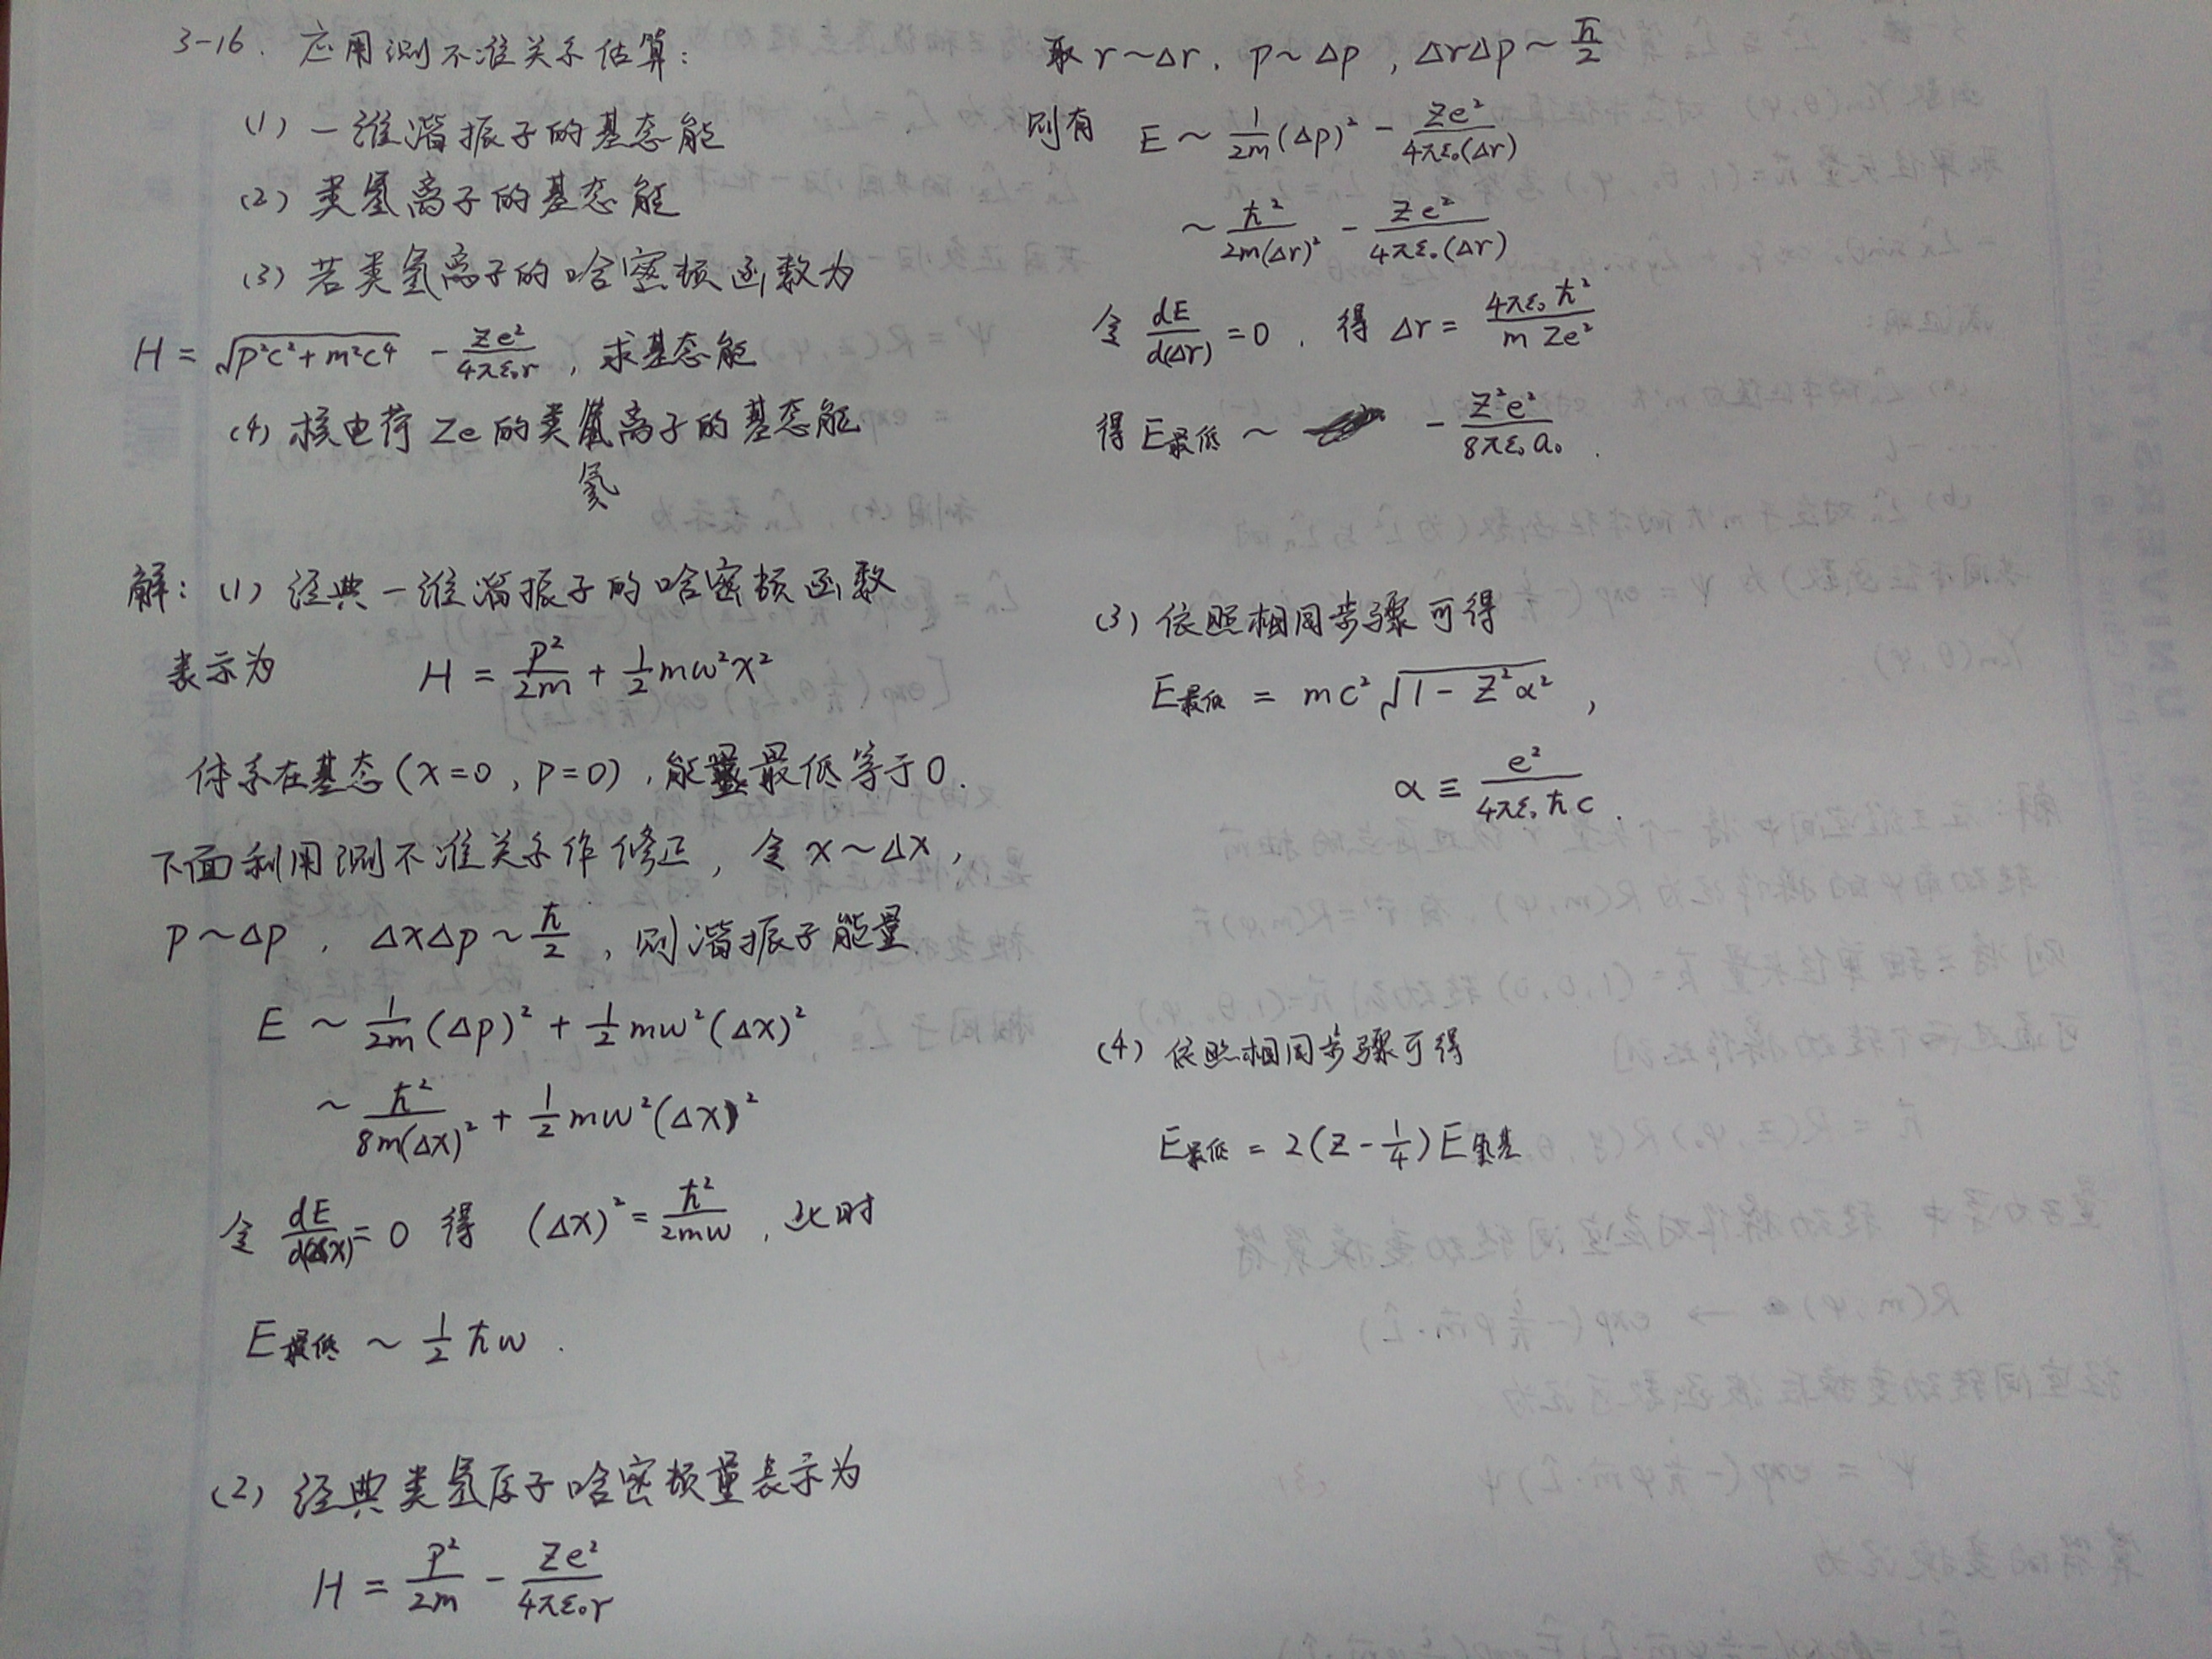 3-16. 应用测不准关系估算:
(1) 一维谐振子的基态能
(2) 类氢离子的基态能
(3) 若类氢离子的哈密顿函数为
H = √(p²c² + m²c⁴) - Ze²/(4πε₀r) , 求基态能
(4) 核电荷 Ze 的类氦离子的基态能
氦
解: (1) 经典一维谐振子的哈密顿函数
表示为 H = p²/(2m) + ½mω²x²
体系在基态 (x=0, p=0), 能量最低等于0.
下面利用测不准关系作修正, 令 x ~ Δx,
p ~ Δp , ΔxΔp ~ ħ/2 , 则谐振子能量
E ~ 1/(2m) (Δp)² + ½mω²(Δx)²
~ ħ²/(8m(Δx)²) + ½mω²(Δx)²
令 dE/d(Δx) = 0 得 (Δx)² = ħ²/(2mω) , 此时
E最低 ~ ½ħω .
(2) 经典类氢原子哈密顿量表示为
H = p²/(2m) - Ze²/(4πε₀r)
取 r ~ Δr, p ~ Δp , ΔrΔp ~ ħ/2
则有 E ~ 1/(2m) (Δp)² - Ze²/(4πε₀(Δr))
~ ħ²/(2m(Δr)²) - Ze²/(4πε₀(Δr))
令 dE/d(Δr) = 0 , 得 Δr = 4πε₀ħ²/(mZe²)
得 E最低 ~ - Z²e²/(8πε₀a₀) .
(3) 依照相同步骤可得
E最低 = mc²√(1 - Z²α²) ,
α ≡ e²/(4πε₀ħc) .
(4) 依照相同步骤可得
E最低 = 2(Z - ¼)E氢基